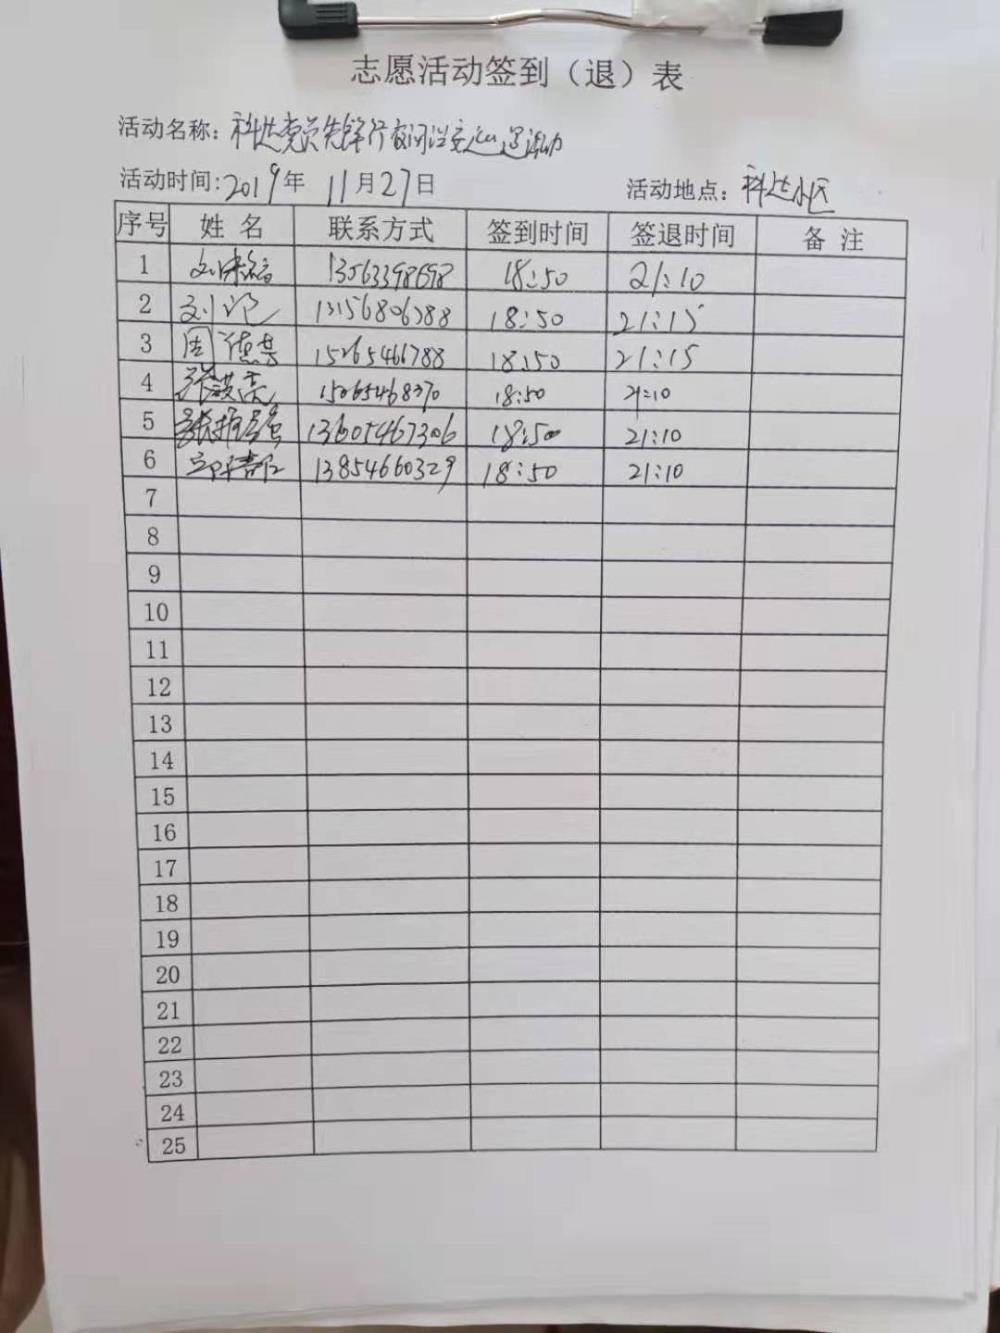 志愿活动签到（退）表
活动名称：科达党员先锋行夜间治安巡逻活动
活动时间：2019年 11月27日 活动地点：科达小区
序号 姓 名 联系方式 签到时间 签退时间 备 注
1 13563398698 18:50 21:10
2 刘 18:50 21:15
3 周德 15265466788 18:50 21:15
4 张 15065468370 18:50 21:10
5 张 13605467306 18:50 21:10
6 13854660329 18:50 21:10
7
8
9
10
11
12
13
14
15
16
17
18
19
20
21
22
23
24
25